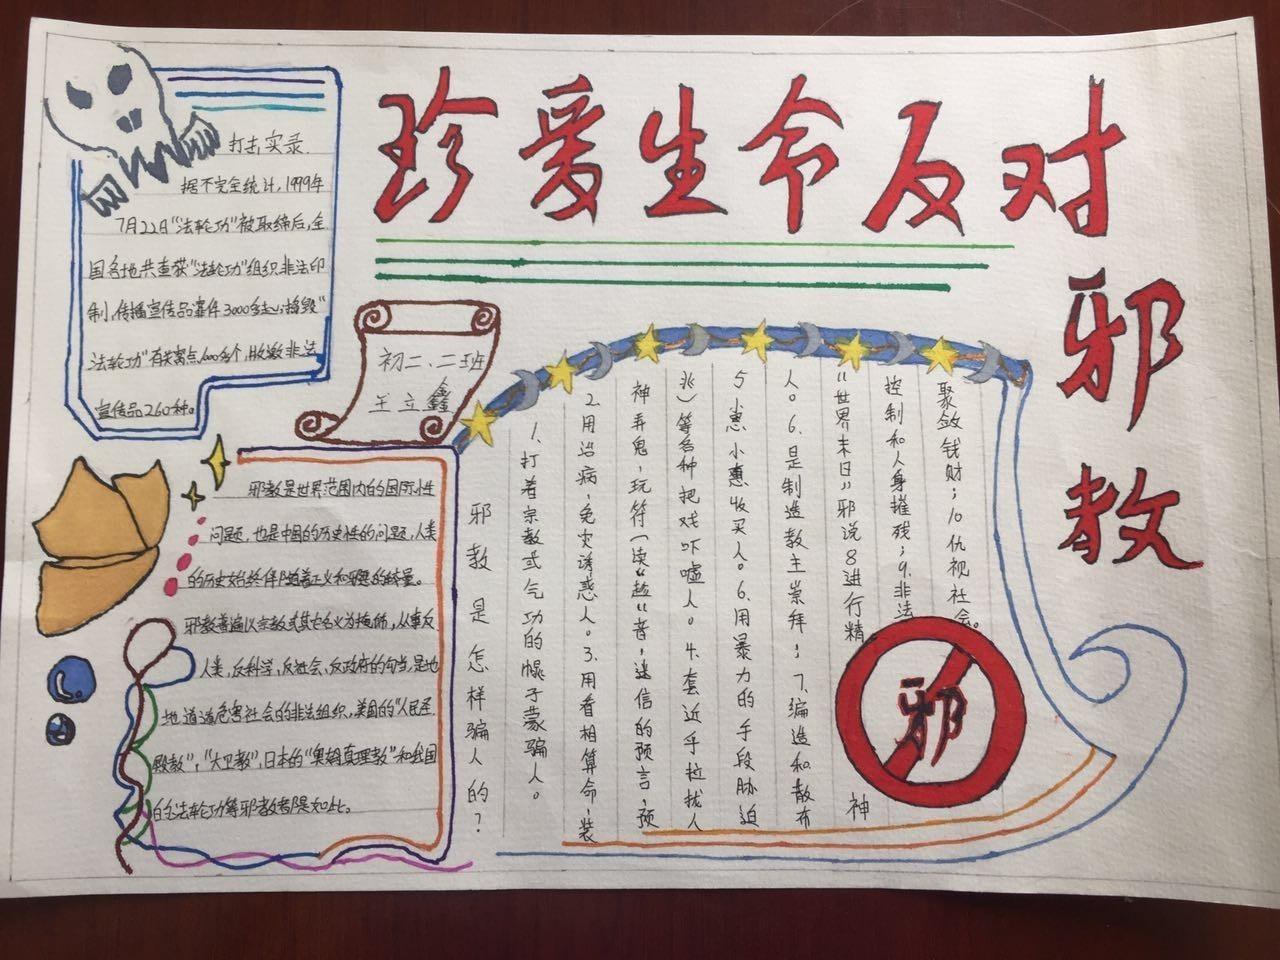 珍爱生命反对
邪教
打击实录
据不完全统计,1999年
7月22日"法轮功"被取缔后,全
国各地共查获"法轮功"组织非法印
制,传播宣传品案件3000多起;捣毁"
法轮功"有关窝点1000多个,收缴非法
宣传品260种。
初二、二班
王立鑫
邪教是世界范围内的国际性
问题,也是中国的历史性的问题,人类
的历史始终伴随着正义和邪恶的较量。
邪教普遍以宗教或其它名义为掩饰,从事反
人类,反科学,反社会,反政府的勾当,是地
地道道危害社会的非法组织,美国的"人民圣
殿教","大卫教",日本的"奥姆真理教"和我国
的法轮功等邪教都是如此。
邪教是怎样骗人的?
1.打着宗教或气功的幌子蒙骗人。
2.用治病、免灾诱惑人。3.用看相算命,装
神弄鬼,玩符(读"趁"音,迷信的预言,预
兆)等各种把戏吓唬人。4.套近乎拉拢人
5小惠小惠收买人。6.用暴力的手段胁迫
人。6.是制造教主崇拜;7.编造和散布
"世界末日"邪说8进行精神
控制和人身摧残;9.非法
聚敛钱财;10仇视社会。
邪